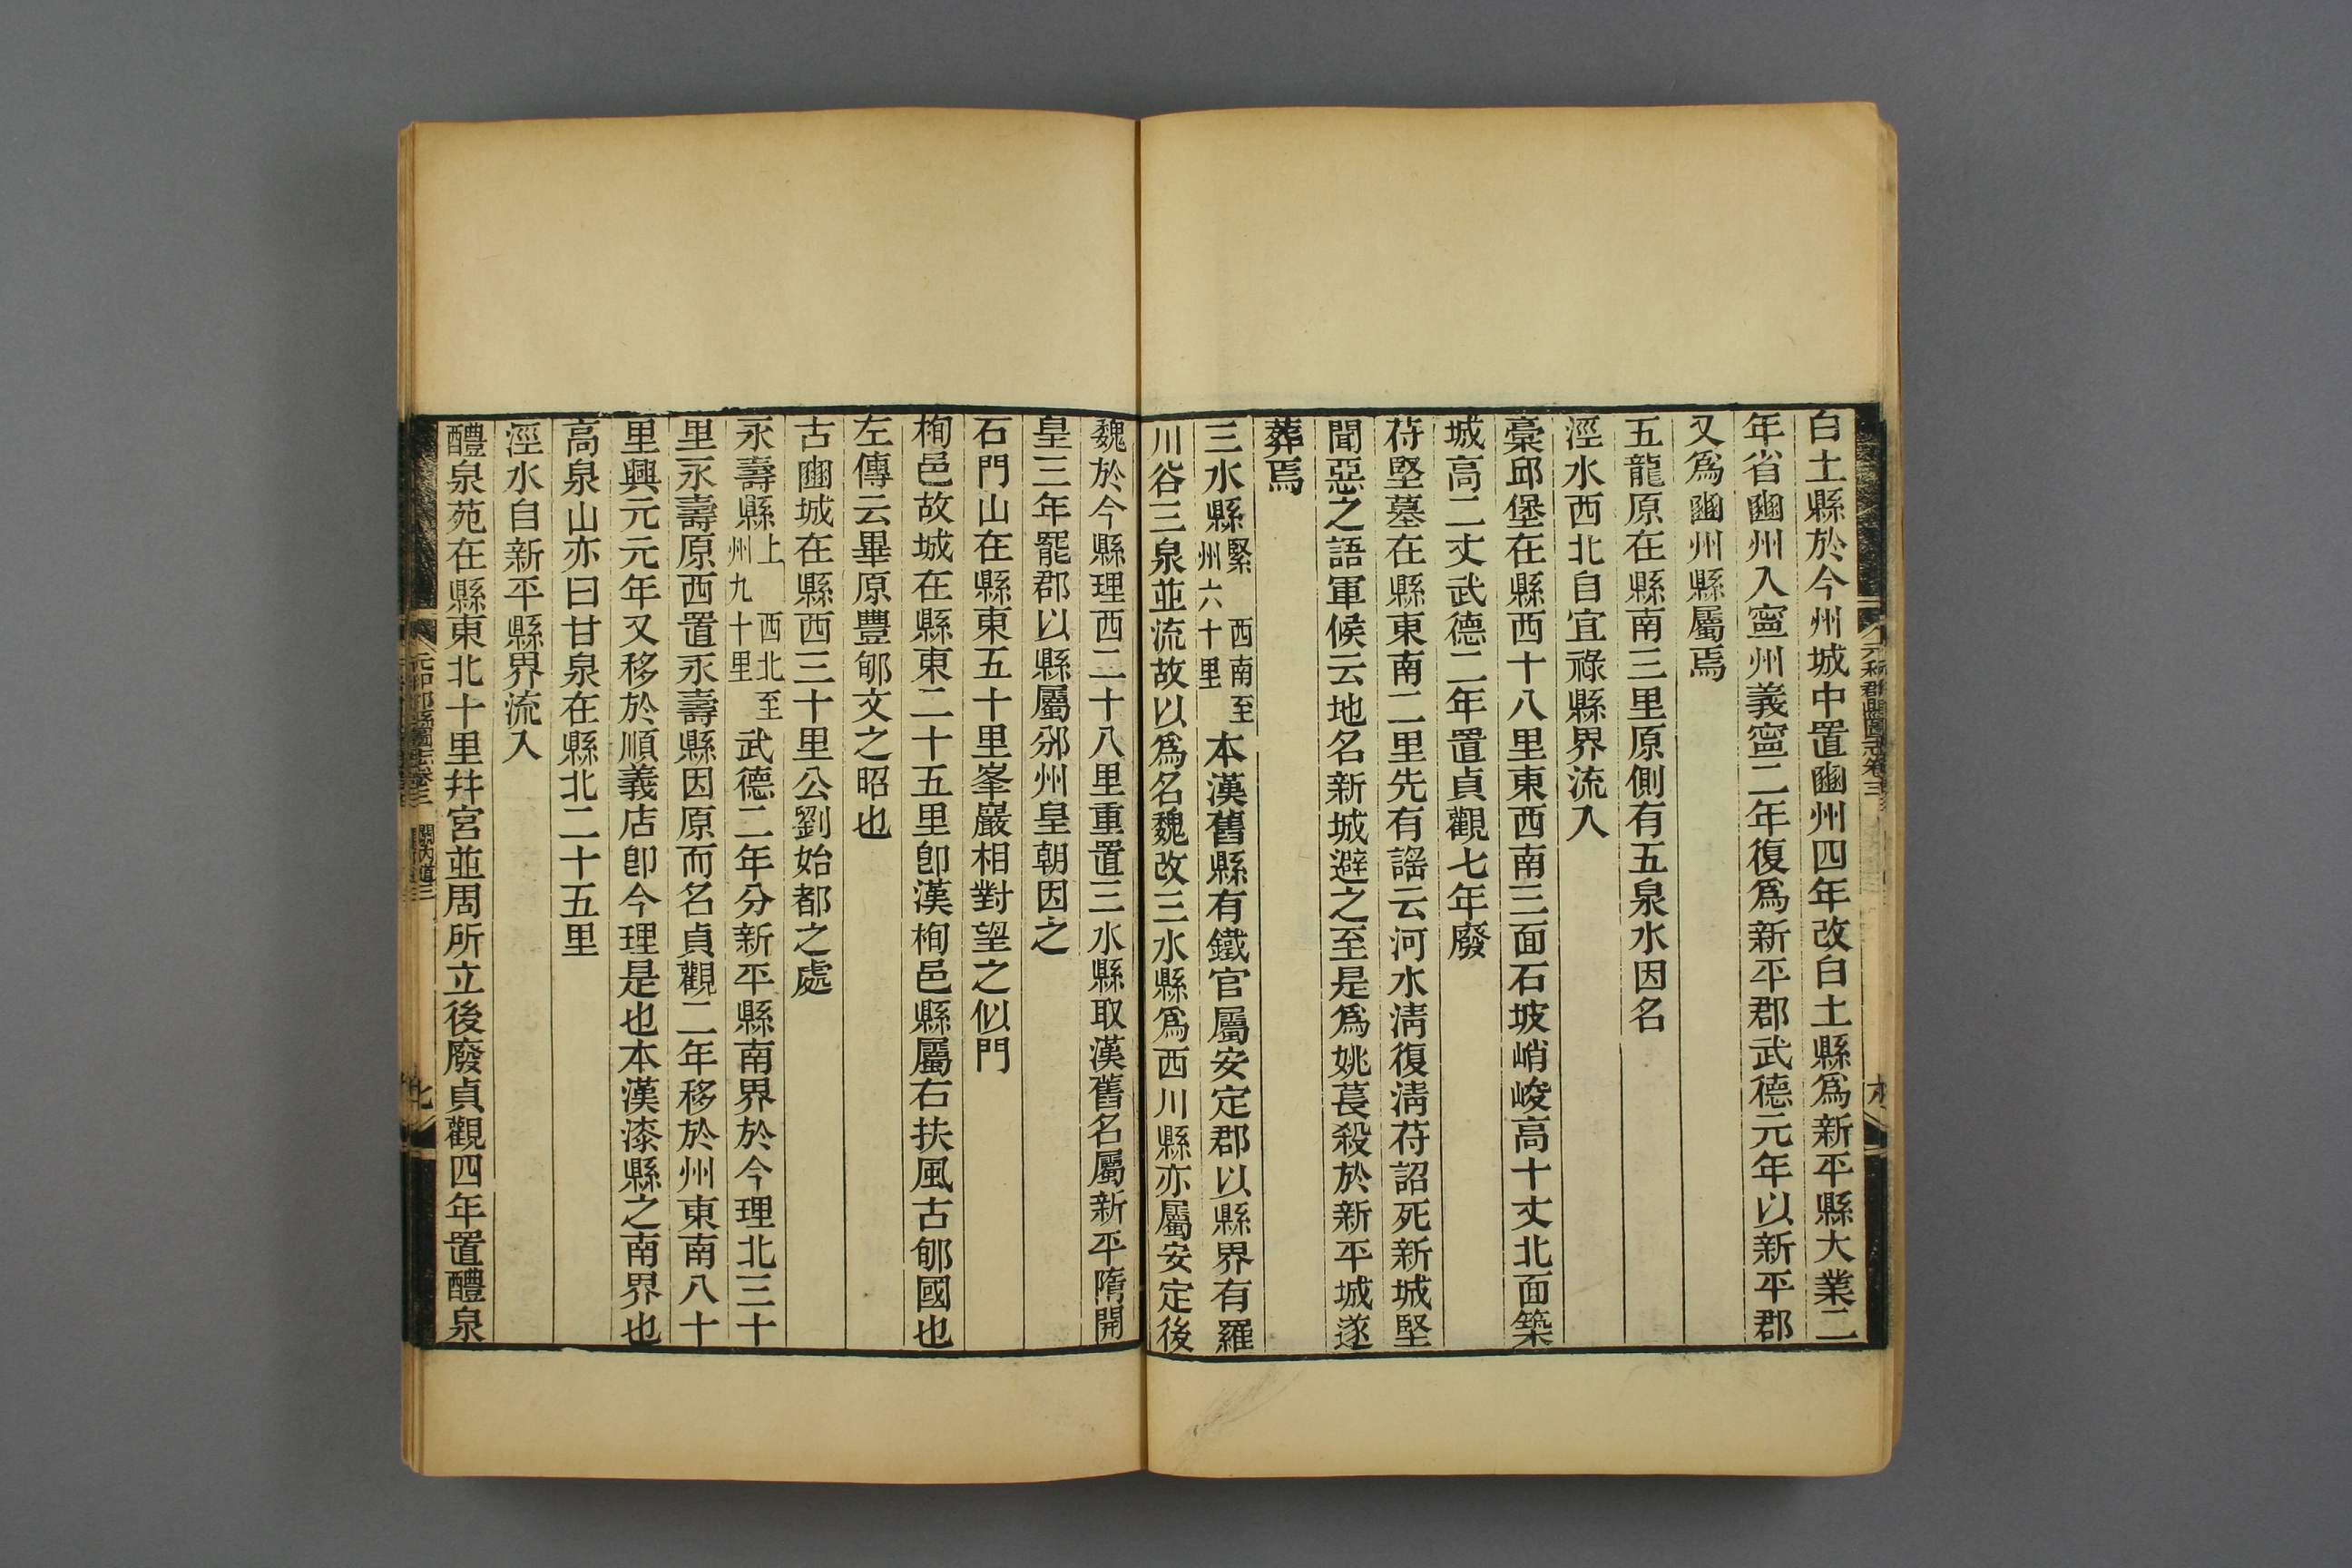 白土縣於今州城中置豳州四年改白土縣爲新平縣大業二
年省豳州入寧州義寧二年復爲新平郡武德元年以新平郡
又爲豳州縣屬焉
五龍原在縣南三里原側有五泉水因名
涇水西北自宜祿縣界流入
稾邱堡在縣西十八里東西南三面石坡峭峻高十丈北面築
城高二丈武德二年置貞觀七年廢
苻堅墓在縣東南二里先有謡云河水淸復淸苻詔死新城堅
聞惡之語軍候云地名新城避之至是爲姚萇殺於新平城遂
葬焉
三水縣緊西南至州六十里本漢舊縣有鐵官屬安定郡以縣界有羅
川谷三泉並流故以爲名魏改三水縣爲西川縣亦屬安定後
魏於今縣理西二十八里重置三水縣取漢舊名屬新平隋開
皇三年罷郡以縣屬邠州皇朝因之
石門山在縣東五十里峯巖相對望之似門
栒邑故城在縣東二十五里卽漢栒邑縣屬右扶風古郇國也
左傳云畢原豐郇文之昭也
古豳城在縣西三十里公劉始都之處
永壽縣上西北至州九十里武德二年分新平縣南界於今理北三十
里永壽原西置永壽縣因原而名貞觀二年移於州東南八十
里興元元年又移於順義店卽今理是也本漢漆縣之南界也
高泉山亦曰甘泉在縣北二十五里
涇水自新平縣界流入
醴泉苑在縣東北十里幷宮並周所立後廢貞觀四年置醴泉
元和郡縣圖志卷三 關內道三